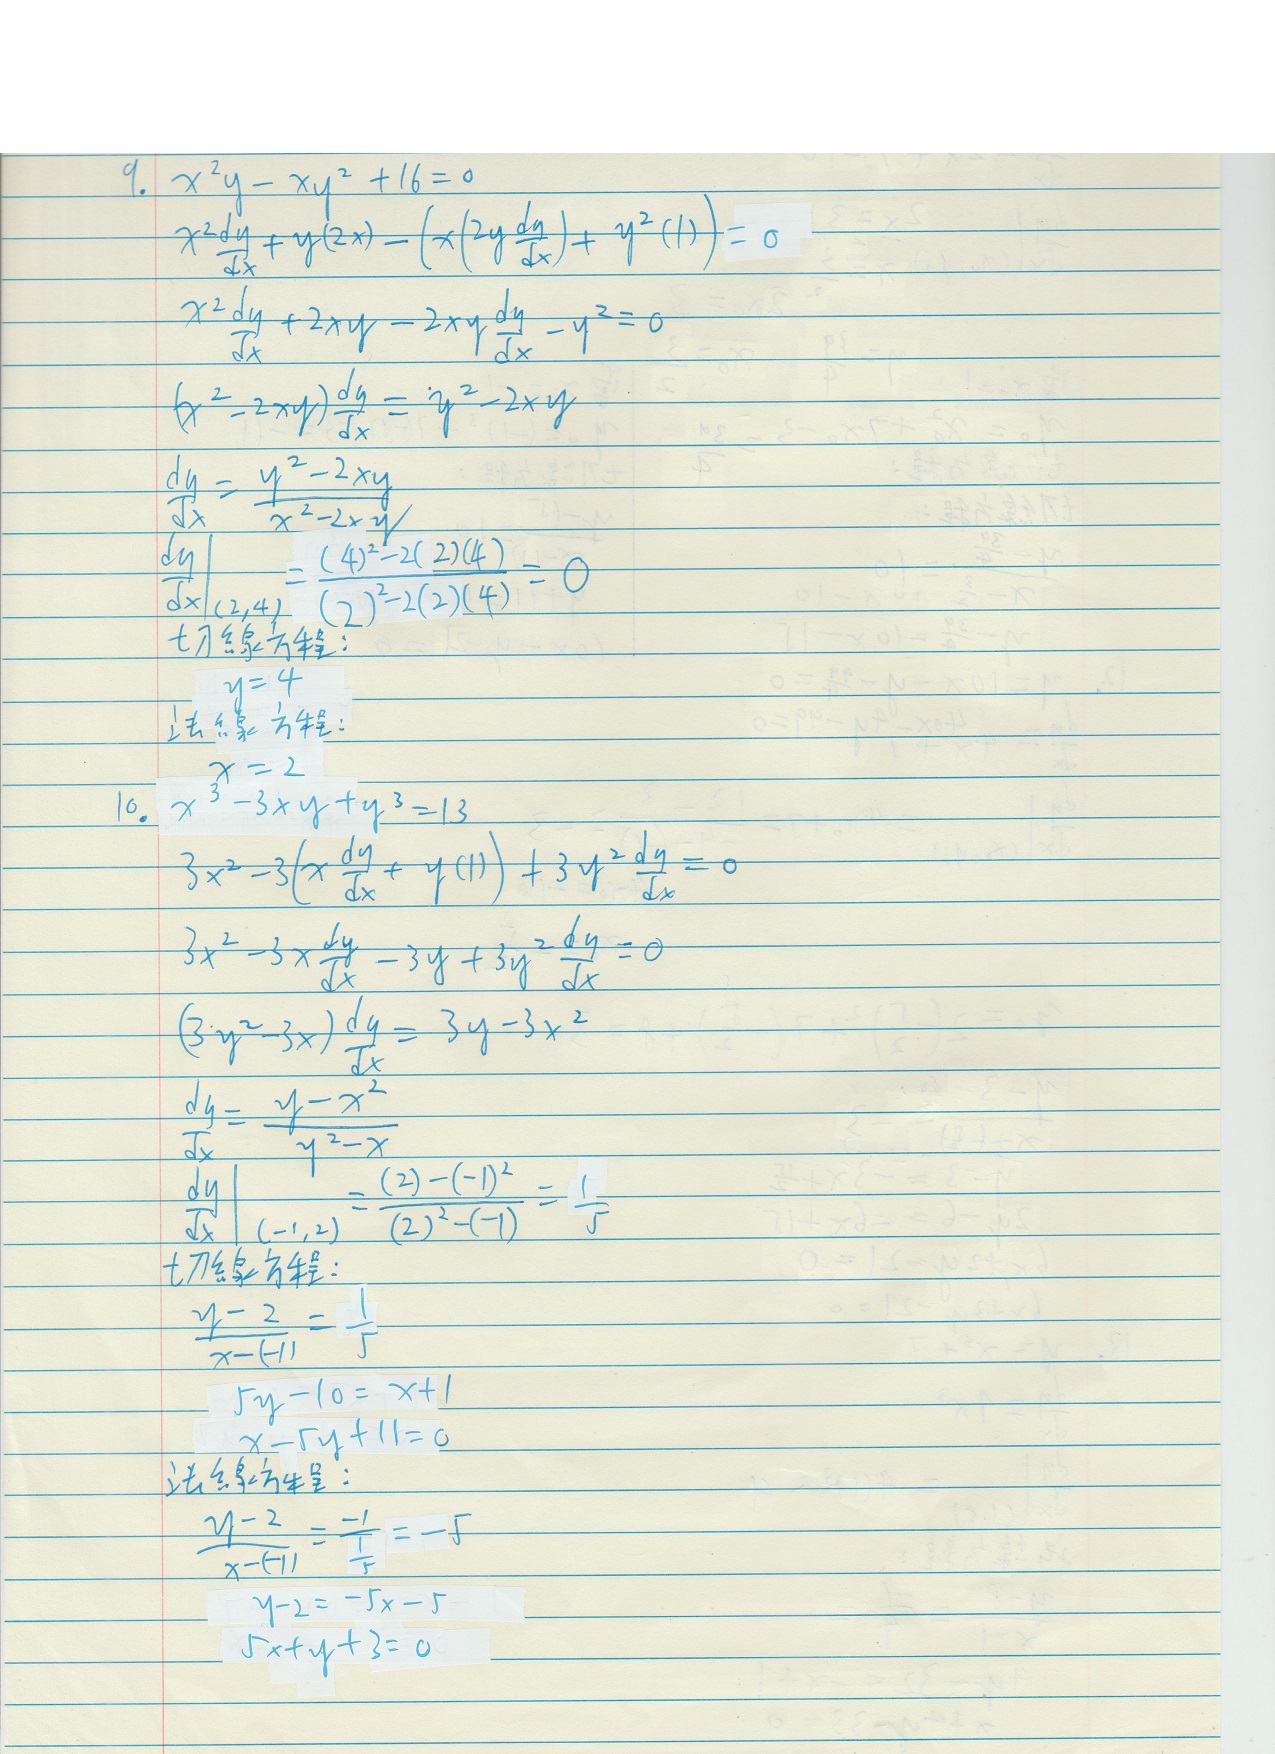 9. x²y − xy² + 16 = 0
x² dy/dx + y(2x) − (x(2y dy/dx) + y²(1)) = 0
x² dy/dx + 2xy − 2xy dy/dx − y² = 0
(x² − 2xy) dy/dx = y² − 2xy
dy/dx = (y² − 2xy)/(x² − 2xy)
dy/dx|(2,4) = ((4)² − 2(2)(4))/((2)² − 2(2)(4)) = 0
切線方程:
y = 4
法線方程:
x = 2
10. x³ − 3xy + y³ = 13
3x² − 3(x dy/dx + y(1)) + 3y² dy/dx = 0
3x² − 3x dy/dx − 3y + 3y² dy/dx = 0
(3y² − 3x) dy/dx = 3y − 3x²
dy/dx = (y − x²)/(y² − x)
dy/dx|(-1,2) = ((2) − (-1)²)/((2)² − (-1)) = 1/5
切線方程:
(y − 2)/(x − (-1)) = 1/5
5y − 10 = x + 1
x − 5y + 11 = 0
法線方程:
(y − 2)/(x − (-1)) = -1/(1/5) = −5
y − 2 = −5x − 5
5x + y + 3 = 0